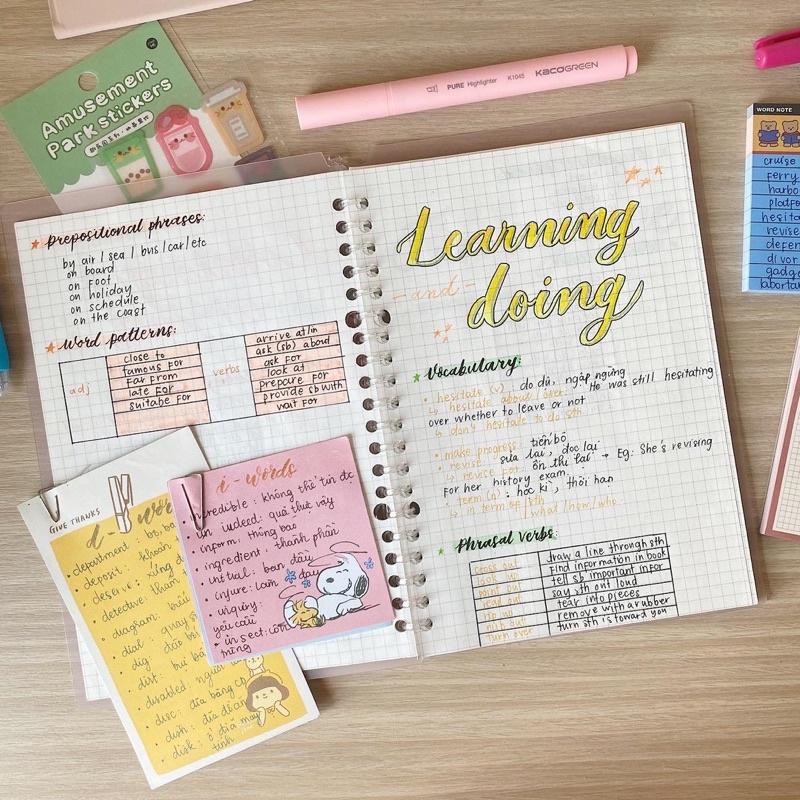 Amusement
Park stickers
PURE Highlighter K1045 KACOGREEN
WORD NOTE
cruise
ferry
harbo
platfo
hesita
revise
defen
divor
gadg
labortar
prepositional phrases:
by air / sea / bus / car / etc
on board
on foot
on holiday
on schedule
on the coast
word patterns:
adj
close to
famous for
far from
late for
suitabe for
verbs
arrive at/in
ask (sb) about
ask for
look at
prepare for
provide sb with
wait for
GIVE THANKS
d - wor
department : bộ, ba
deposit : khoản
deserve : xứng đ
detective : thám
diagram : biểu
dial : quay s
dig : đào b
dirt : bụi bẩ
disabled : người
disc : đĩa bằng cp
dish : đĩa để ăn
disk : ổ đĩa máy
tính
i - words
incredible : không thể tin đc
indeed : quả thực vậy
inform : thông báo
ingredient : thành phần
initial : ban đầu
injure : làm đau
inquiry :
yêu cầu
insect : côn
trùng
Learning
- and -
doing
Vocabulary:
hesitate (v) do dự, ngập ngừng
↳ hesitate about / over He was still hesitating
over whether to leave or not
↳ don't hesitate to do sth
make progress : tiến bộ
revise : sửa lại, đọc lại
↳ revise for : ôn thi lại → Eg: She's revising
for her history exam.
term (n) : học kì, thời hạn
↳ in term of sth
/ what / how / who
Phrasal verbs:
cross out draw a line through sth
look up find information in book
point out tell sb important infor
read out say sth out loud
rip up tear into pieces
rub out remove with a rubber
turn over turn sth is toward you